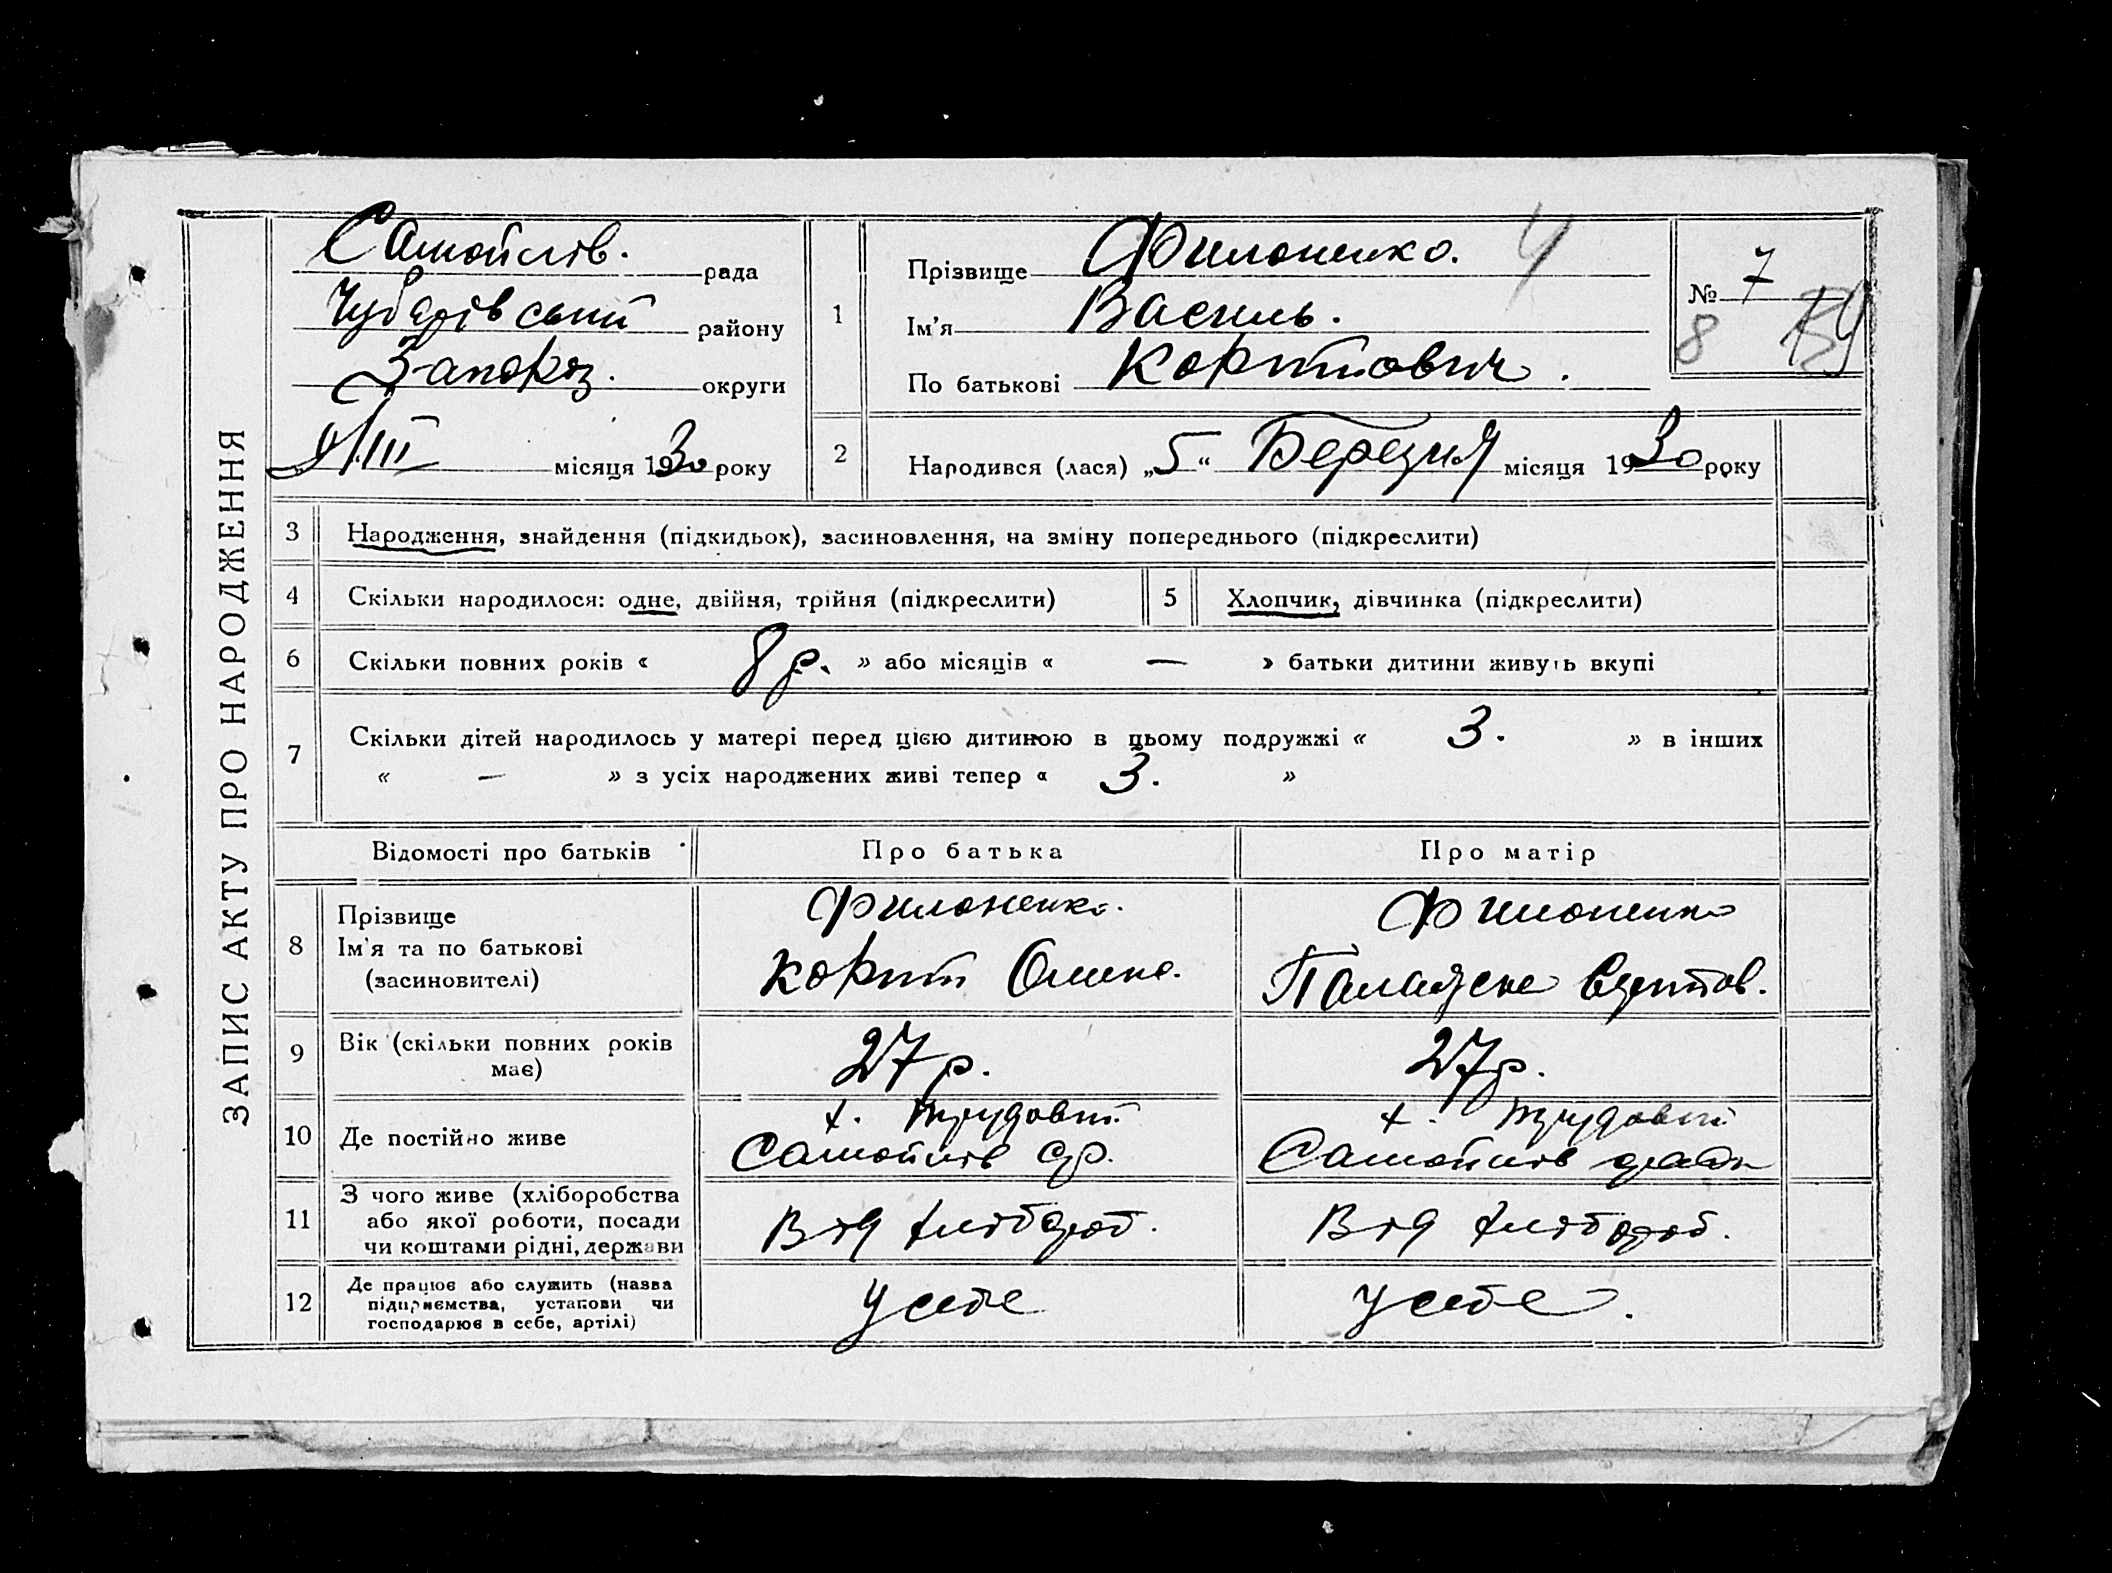 ЗАПИС АКТУ ПРО НАРОДЖЕННЯ
Самойлів. рада
Чубарівський району
Запоріз. округи
9/III місяця 1930 року
1
Прізвище Филоненко. 4
Ім'я Василь.
По батькові Корнійович.
№ 7
8
2
Народився (лася) „5“ Березня місяця 1930 року
3 Народження, знайдення (підкидьок), засиновлення, на зміну попереднього (підкреслити)
4 Скільки народилося: одне, двійня, трійня (підкреслити) 5 Хлопчик, дівчинка (підкреслити)
6 Скільки повних років « 8 р. » або місяців « — » батьки дитини живуть вкупі
7 Скільки дітей народилось у матері перед цією дитиною в цьому подружжі « 3. » в інших
« — » з усіх народжених живі тепер « 3. »
Відомості про батьків Про батька Про матір
8 Прізвище
Ім'я та по батькові
(засиновителі)
Филоненко.
Корній
Филоненко
9 Вік (скільки повних років
має)
27 р.
27 р.
10 Де постійно живе
х. Трудовий
Самойлів ср.
х. Трудовий
Самойлів
11 З чого живе (хліборобства
або якої роботи, посади
чи коштами рідні, держави
Від хлібороб.
Від хлібороб.
12 Де працює або служить (назва
підприємства, установи чи
господарює в себе, артілі)
У себе
У себе.